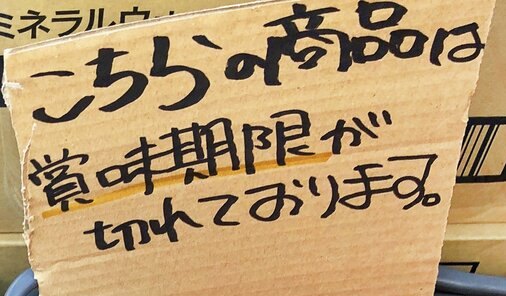 ミネラルウォ
こちらの商品は
賞味期限が
切れております。